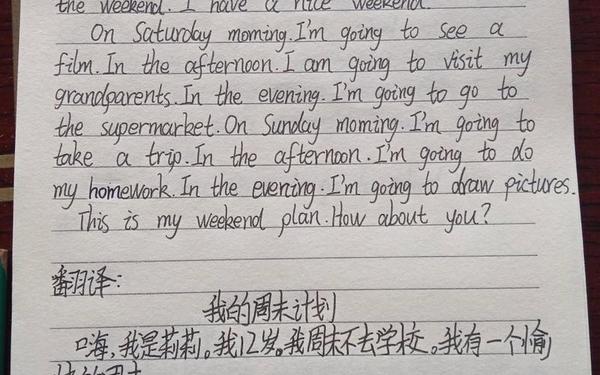 the weekend. I have a nice weekend.
On Saturday moming. I'm going to see a
film. In the afternoon. I am going to visit my
grandparents. In the evening. I'm going to go to
the supermarket. On Sunday moming. I'm going to
take a trip. In the afternoon. I'm going to do
my homework. In the evening. I'm going to draw pictures.
This is my weekend plan. How about you?
翻译:
我的周末计划
嗨,我是莉莉。我12岁。我周末不去学校。我有一个愉